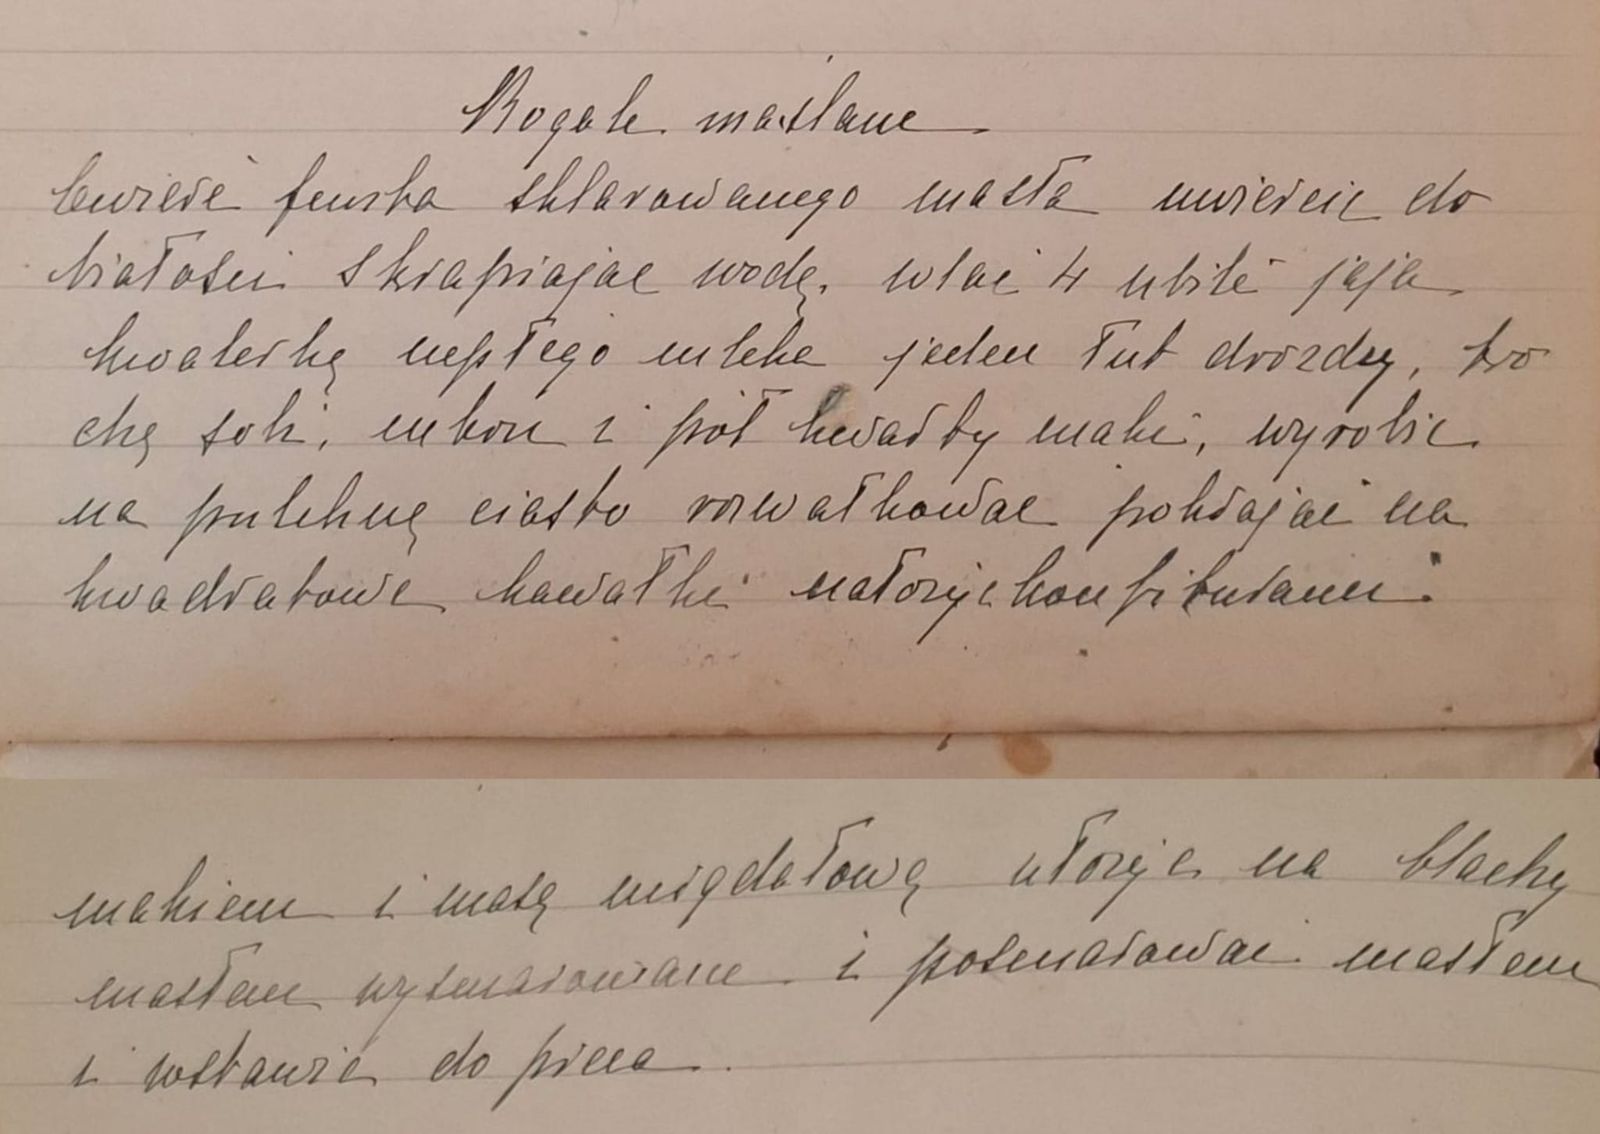 Rogale maślane
Ćwierć funta sklarowanego masła uwiercić do
białości skrapiając wodą. wlać 4 ubite jaja
kwaterkę ciepłego mleka jeden łut drożdży, tro
chę soli, cukru i pół kwarty mąki, wyrobić
na pulchne ciasto rozwałkować pokrajać na
kwadratowe kawałki nałożyć konfiturami
makiem i masą migdałową ułożyć na blachy
masłem wysmarowane i posmarować masłem
i wstawić do pieca.